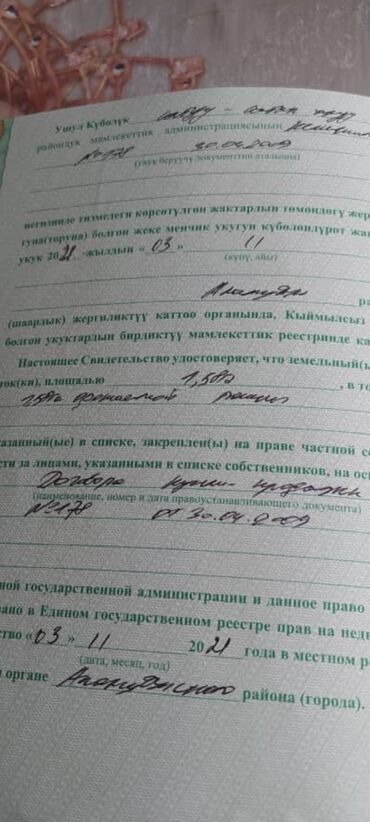 Ушул Күбөлүк сатуу – сатып алуу
райондук мамлекеттик администрациясынын
№178 30.04.2009
(укук берүүчү документтин аталышы)
негизинде тизмеден көрсөтүлгөн жактардын төмөндөгү жер
туна(торуна) болгон жеке менчик укугун күбөлөндүрөт жа
укук 2021 -жылдын « 03 » 11
(күнү, айы)
(шаардык) жергиликтүү каттоо органында, Кыймылсыз
болгон укуктардын бирдиктүү мамлекеттик реестринде ка
Настоящее Свидетельство удостоверяет, что земельный(ы
ток(ки), площадью 1,58га , в то
1,58га орошаемой пашни
казанный(ые) в списке, закреплен(ы) на праве частной со
сти за лицами, указанными в списке собственников, на ос
Договора купли-продажи
(наименование, номер и дата правоустанавливающего документа)
№178 от 30.04.2009
ной государственной администрации и данное право
вано в Едином государственном реестре прав на недв
ство «03» 11 2021 года в местном р
(дата, месяц, год)
органе Аламудунского района (города).